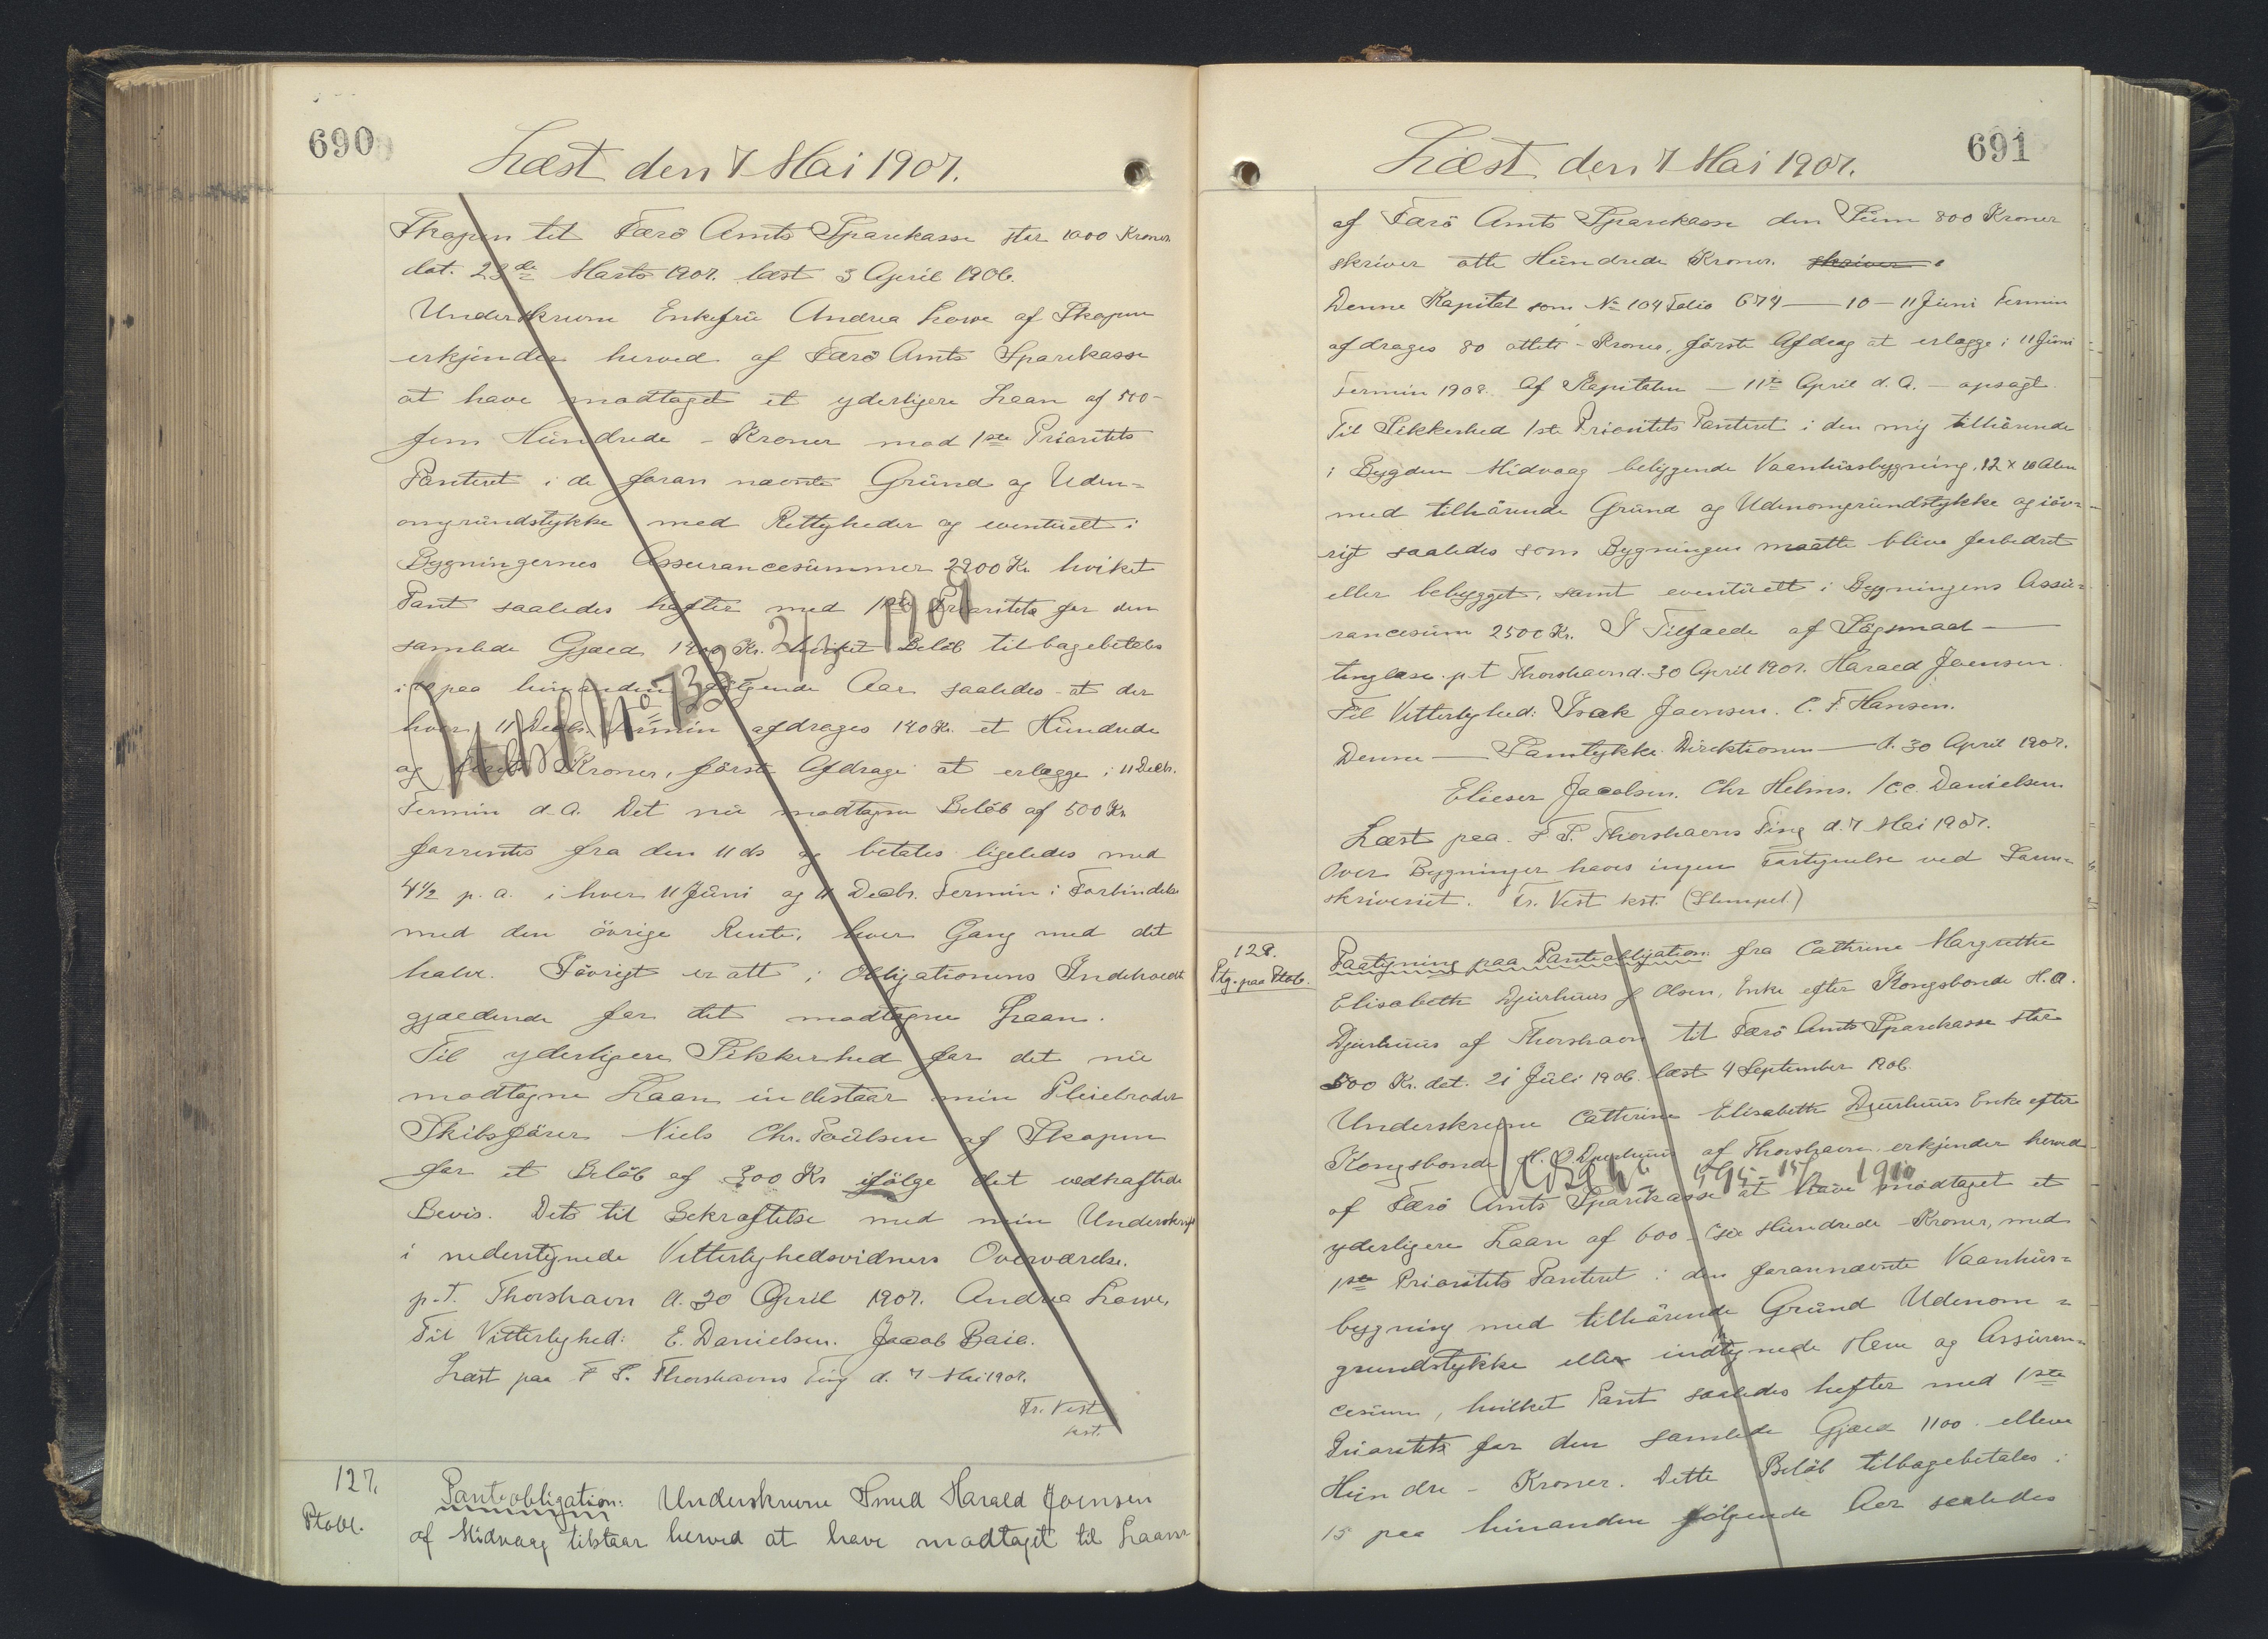 690
Læst den 7 Mai 1907.
Skopun til Færö Amts Sparekasse stor 1000 Kroner
dat. 23de Marts 1907. læst 3 April 1906.
Underskrevne Enkefru Andrea Lowe af Skopun
erkjender herved af Færö Amts Sparekasse
at have modtaget et yderligere Laan af 500 -
fem Hundrede - Kroner mod 1ste Prioritets
Panteret i de foran nævnte Grund og Uden-
omgrundstykke med Rettigheder og eventuelt i
Bygningernes Assurancesummer 2900 Kr hvilket
Pant saaledes hefter med 1ste Prioritets for den
samlede Gjæld 1400 Kr. hvilket Beløb tilbagebetales
i paa hinanden følgende Aar saaledes at der
hver 11 Decbr. Termin afdrages 140 Kr. et Hundrede
og Kroner, förste Afdrage at erlægge i 11 Decb.
Termin d. A. Det nu modtagne Belöb af 500 Kr
forrentes fra den 11 ds og betales ligeledes med
4½ p. a. i hver 11 Juni og 11 Decbr. Termin i Forbindelse
med den övrige Rente, hver Gang med det
halve. Iövrigt er alt i Obligationens Indehold
gjældende for det modtagne Laan.
Til yderligere Sikkerhed for det nu
modtagne Laan indestaar min Pleiebroder
Skibsförer Niels Chr. Poulsen af Skopun
for et Belöb af 300 Kr ifölge det vedhæftede
Bevis. Dets til Bekræftelse med min Underskrift
i nedentegnede Vitterlighedsvidners Overværelse.
p.t. Thorshavn d. 30 April 1907. Andrea Lowe.
Til Vitterlighed: E. Danielsen. Jacob Baie.
Læst paa F S. Thorshavns Ting d. 7 Mai 1907.
Fr. Vest
kst.
127.
Ptobl.
Panteobligation: Underskrevne Smed Harald Joensen
af Midvaag tilstaar herved at have modtaget til Laans
691
Læst den 7 Mai 1907.
af Færö Amts Sparekasse den Sum 800 Kroner
skriver otte Hundrede Kroner. skriver
Denne Kapital som No 104 Folio 674 — 10 - 11 Juni Termin
afdrages 80 otteti - Kroner, förste Afdrag at erlægge i 11 Juni
Termin 1908. Af Kapitalen — 11te April d. A. — opsagt
Til Sikkerhed 1ste Prioritets Panteret i den mig tilhörende
i Bygden Midvaag beliggende Vaanhusbygning, 12 x 10 Alen
med tilhörende Grund og Udenomgrundstykke og iöv-
rigt saaledes som Bygningen maatte blive forbedret
eller bebygget, samt eventuelt i Bygningens Assu-
rancesum 2500 Kr. I Tilfælde af Sögsmaal —
tinglæse. p.t Thorshavn d. 30 April 1907. Harald Joensen.
Til Vitterlighed: Isak Joensen. C. F. Hansen.
Denne — Samtykke. Direktionen — d. 30 April 1907.
Elieser Jacobsen. Chr Helms. /CC. Danielsen.
Læst paa F S. Thorshavns Ting d. 7 Mai 1907.
Over Bygninger haves ingen Fortegnelse ved Soren-
skriveriet. Fr. Vest kst. (Stempel.)
128.
Ptg. paa Ptob.
Paategning paa Panteobligation fra Cathrine Margrethe
Elisabeth Djurhuus f Olsen, Enke efter Kongsbonde H. A.
Djurhuus af Thorshavn til Færö Amts Sparekasse stor
500 Kr. dat. 21 Juli 1906. læst 4 September 1906.
Underskrevne Cathrine Elisabeth Djurhuus Enke efter
Kongsbonde H. A Djurhuus af Thorshavn erkjender herved
af Færö Amts Sparekasse at have modtaget et
yderligere Laan af 600 - sex Hundrede - Kroner, med
1ste Prioritets Panteret i den forannævnte Vaanhus-
bygning med tilhörende Grund Udenom-
grundstykke eller indtegnede Have og Assuran-
cesum, hvilket Pant saaledes hefter med 1ste
Prioritets for den samlede Gjæld 1100 - elleve
Hundre - Kroner. Dette Belöb tilbagebetales i
15 paa hinanden fölgende Aar saaledes